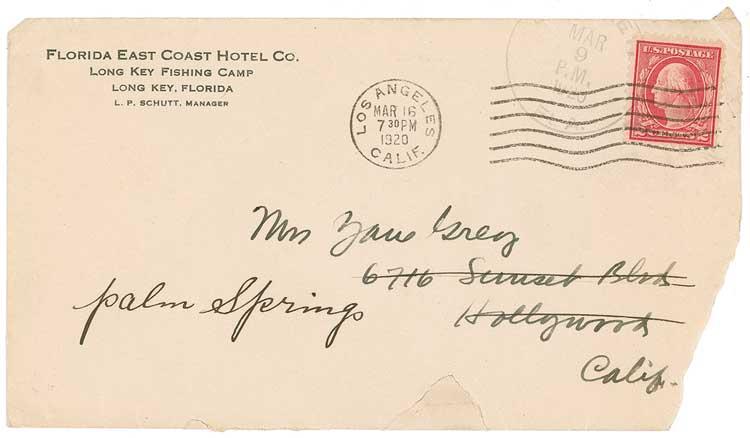 FLORIDA EAST COAST HOTEL CO.
LONG KEY FISHING CAMP
LONG KEY, FLORIDA
L. P. SCHUTT, MANAGER
LOS ANGELES
MAR 16
7 30 PM
1920
CALIF.
MAR
9
P.M.
1920
U.S. POSTAGE
Mrs Zane Grey
6716 Sunset Blvd
Hollywood
Calif.
Palm Springs